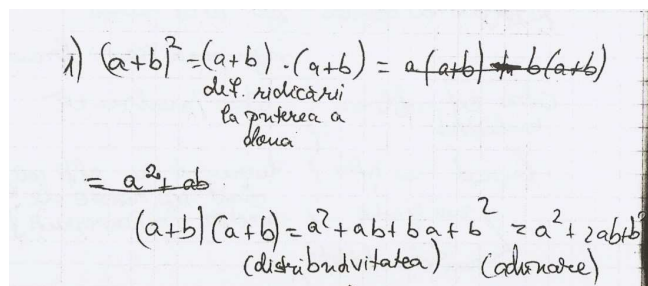 1) (a+b)² = (a+b) · (a+b) = a(a+b) + b(a+b)
def. ridicării
la puterea a
doua
= a² + ab
(a+b)(a+b) = a² + ab + ba + b² = a² + 2ab + b²
(distributivitatea) (adunare)